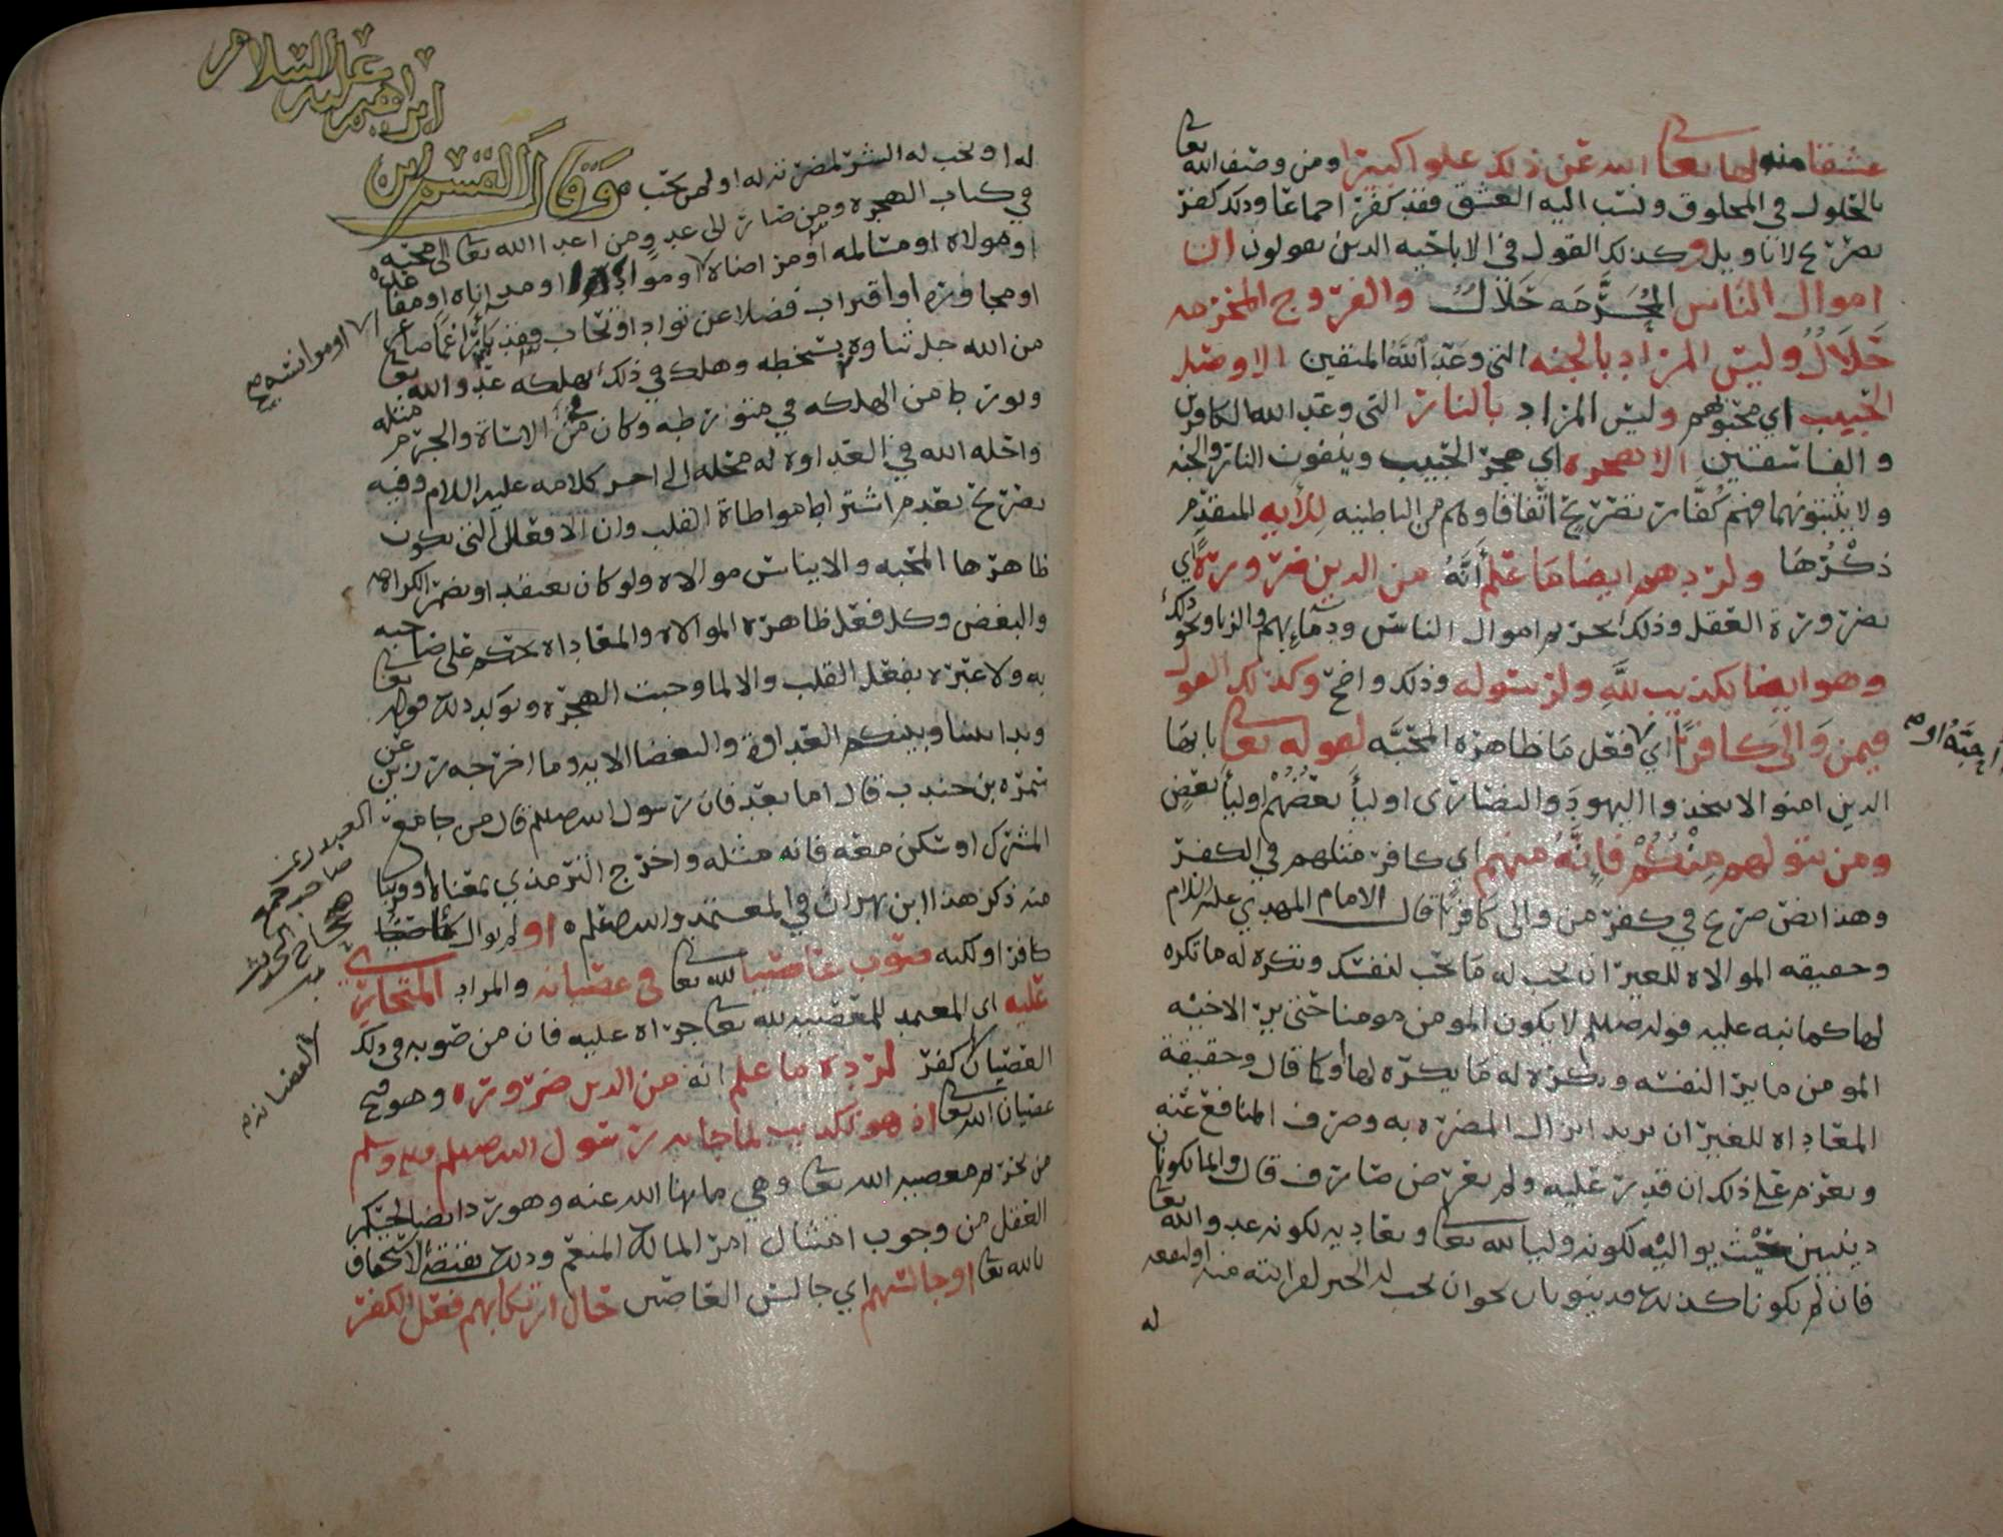 عشقا منه لها تعالى الله عن ذلك علوا كبيرا ومن وصف الله تعالى
بالحلول في المخلوق ونسب اليه العشق فقد كفر اجماعا وذلك كفر
تصريح لا تاويل وكذلك القول في الاباحيه الذين يقولون ان
اموال الناس المحرمه حلال والفروج المحرمه
حلال وليس المراد بالجنه التي وعد الله المتقين الا وصل
الحبيب اي محبوبهم وليس المراد بالنار التي وعد الله الكافرين
والفاسقين الا هجره اي هجر الحبيب وينفون النار والجنه
ولا يثبتونهما فهم كفار تصريح اتفاقا وهم من الباطنيه للآيه المتقدم
ذكرها ولردهم ايضا ما علم أنه من الدين ضرورة اي
بضرورة العقل وذلك تحريم اموال الناس ودمائهم والزنا ونحو ذلك
وهو ايضا تكذيب لله ولرسوله وذلك واضح وكذلك القول
فيمن والى كافرا اي فعل ما ظاهره المحبه لقوله تعالى يا ايها
أحبه او
الذين امنوا لا تتخذوا اليهود والنصارى اوليا بعضهم اوليا بعض
ومن يتولهم منكم فإنه منهم اي كافر مثلهم في الكفر
وهذا نص صريح في كفر من والى كافرا قال الامام المهدي عليه السلام
وحقيقه الموالاه للغير ان تحب له ما تحب لنفسك وتكره له ما تكره
لها كما نبه عليه قوله صللم لا يكون المومن مومنا حتى يريد لاخيه
المومن ما يريد لنفسه ويكره له ما يكره لها او كما قال وحقيقة
المعاداه للغير ان يريد انزال المضره به وصرف المنافع عنه
ويعزم على ذلك ان قدر عليه ولم يعرض صارف قال وانما يكونان
دينيين حيث يواليه لكونه وليا لله تعالى ويعاديه لكونه عدو الله تعالى
فان لم يكونا كذلك فدنيويان نحو ان يحب له الخير لقرابته منه او لنفعه
له
له او يحب له الشر لمضرته له او لمن يحب
وقال القسم بن
ابراهيم عليه السلام
في كتاب الهجره ومن صار الى عدو من اعدا الله تعالى الى محبه
او موالاه او مسالمه او من اصناه او مواكله او مداناه او مقاعده
او موانسه
او مجاوره او اقتراب فضلا عن تواد او تحاب فقد بآ راغما صاغرا
من الله جل ثناوه بسخطه وهلك في ذلك بهلكه عدو الله تعالى
وتورط من الهلكه في متورطه وكان في الاساة والجرم مثله
واحله الله في العداوه له محله الى اخر كلامه عليه السلام وفيه
تصريح بعدم اشتراط مواطاة القلب وان الافعال التي يكون
ظاهرها المحبه والايناس موالاه ولو كان يعتقد او يضمر الكراهه
والبغض وكل فعل ظاهره الموالاه والمعاداه يحكم على صاحبه
به ولا عبره بفعل القلب والا لما وجبت الهجره ويويد ذلك قوله تعالى
وبدا بيننا وبينكم العداوة والبغضا الايه وما اخرجه رزين عن
العبدري
صاحب جمع
صحاح الحديث
سمره بن جندب قال اما بعد فان رسول الله صللم قال من جامع
المشرك او سكن معه فانه مثله واخرج الترمذي بمعناه او قريبا
منه ذكر هذا ابن بهران في المعتمد والله اعلم او لم يوال
كافرا ولكنه صوب عاصيا لله تعالى في عصيانه والمراد المتجاري
عليه اي المعتمد للمعصيه لله تعالى جراه عليه فان من صوبه في ذلك
العصيان كفر لرده ما علم انه من الدين ضروره وهو قبح
عصيان الله تعالى اذ هو تكذيب لما جا به رسول الله صللم وسلم
من تحريم معصيه الله تعالى وهي ما نهى الله عنه وهو رد ايضا لحكم
العقل من وجوب امتثال امر المالك المنعم وذلك يقتضي الاستخفاف
بالله تعالى او جالسهم اي جالس العاصين حال ارتكابهم فعل الكفر